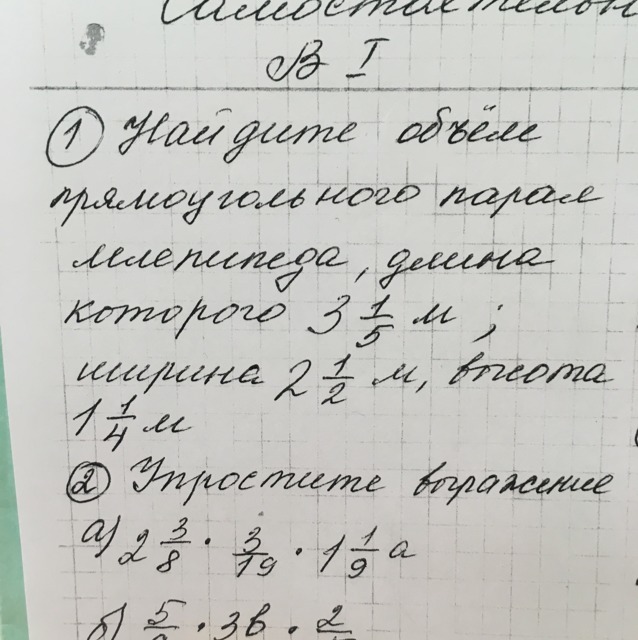 Самостоятельн
В I
① Найдите объём
прямоугольного парал
ллепипеда, длина
которого 3 1/5 м ;
ширина 2 1/2 м, высота
1 1/4 м
② Упростите выражение
а) 2 3/8 · 3/19 · 1 1/9 а
б) 5/ · 3в · 2/